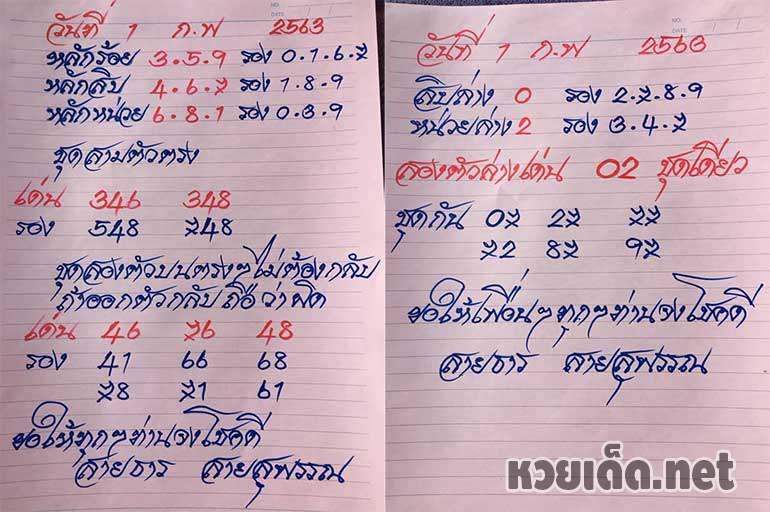 วันที่ 1 ก.พ 2563
หลักร้อย 3.5.9 รอง 0.1.6.7
หลักสิบ 4.6.7 รอง 1.8.9
หลักหน่วย 6.8.1 รอง 0.3.9
ชุดสามตัวตรง
เด่น 346 348
รอง 548 748
ชุดสองตัวบนตรงๆไม่ต้องกลับ
ถ้าออกตัวกลับถือว่าผิด
เด่น 46 76 48
รอง 41 66 68
78 71 61
ขอให้ทุกๆท่านจงโชคดี
สายธาร สายสุพรรณ
NO.
DATE
วันที่ 1 ก.พ 2563
สิบล่าง 0 รอง 2.7.8.9
หน่วยล่าง 2 รอง 3.4.7
สองตัวล่างเด่น 02 ชุดเดียว
ชุดกัน 07 27 77
72 87 97
ขอให้เพื่อนๆทุกๆท่านจงโชคดี
สายธาร สายสุพรรณ
NO.
DATE
หวยเด็ด.net